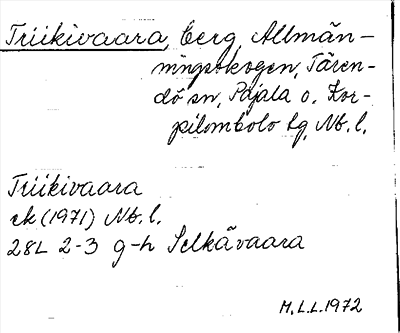 Triikivaara, berg, Allmän-
ningsskogen, Tären-
dö sn, Pajala o. Kor-
pilombolo tg, Nb. l.
Triikivaara
ek (1971) Nb. l.
28L 2-3 g-h Selkävaara
M.L.L. 1972